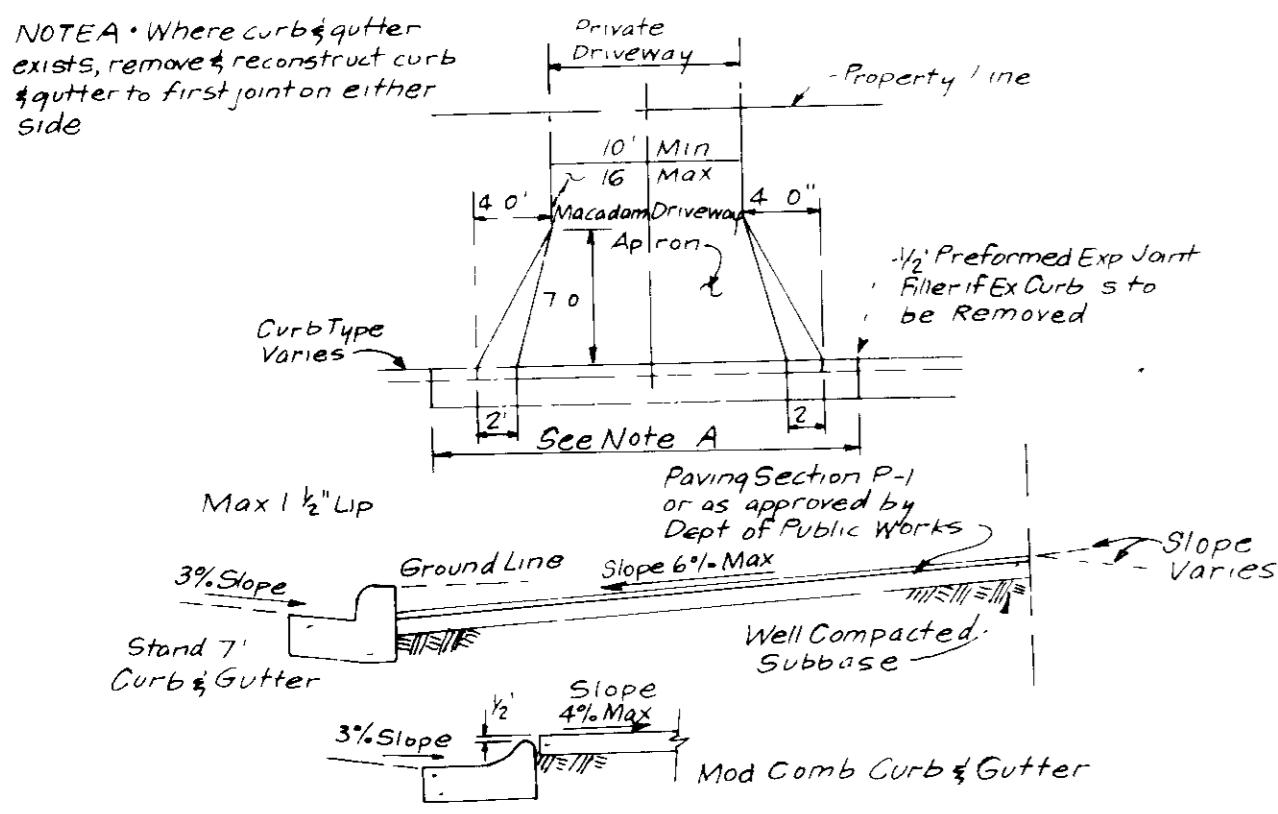 NOTE A • Where curb & gutter
exists, remove & reconstruct curb
& gutter to first joint on either
side
Private
Driveway
Property line
10' Min
16 Max
4 0'
4 0"
Macadam Driveway
Apron
7 0
1/2' Preformed Exp Joint
Filler if Ex Curb s to
be Removed
Curb Type
Varies
2'
2
See Note A
Paving Section P-1
or as approved by
Dept of Public Works
Max 1 1/2" Lip
Ground Line
Slope 6% Max
Slope
Varies
3% Slope
Well Compacted
Subbase
Stand 7'
Curb & Gutter
1/2'
Slope
4% Max
3% Slope
Mod Comb Curb & Gutter